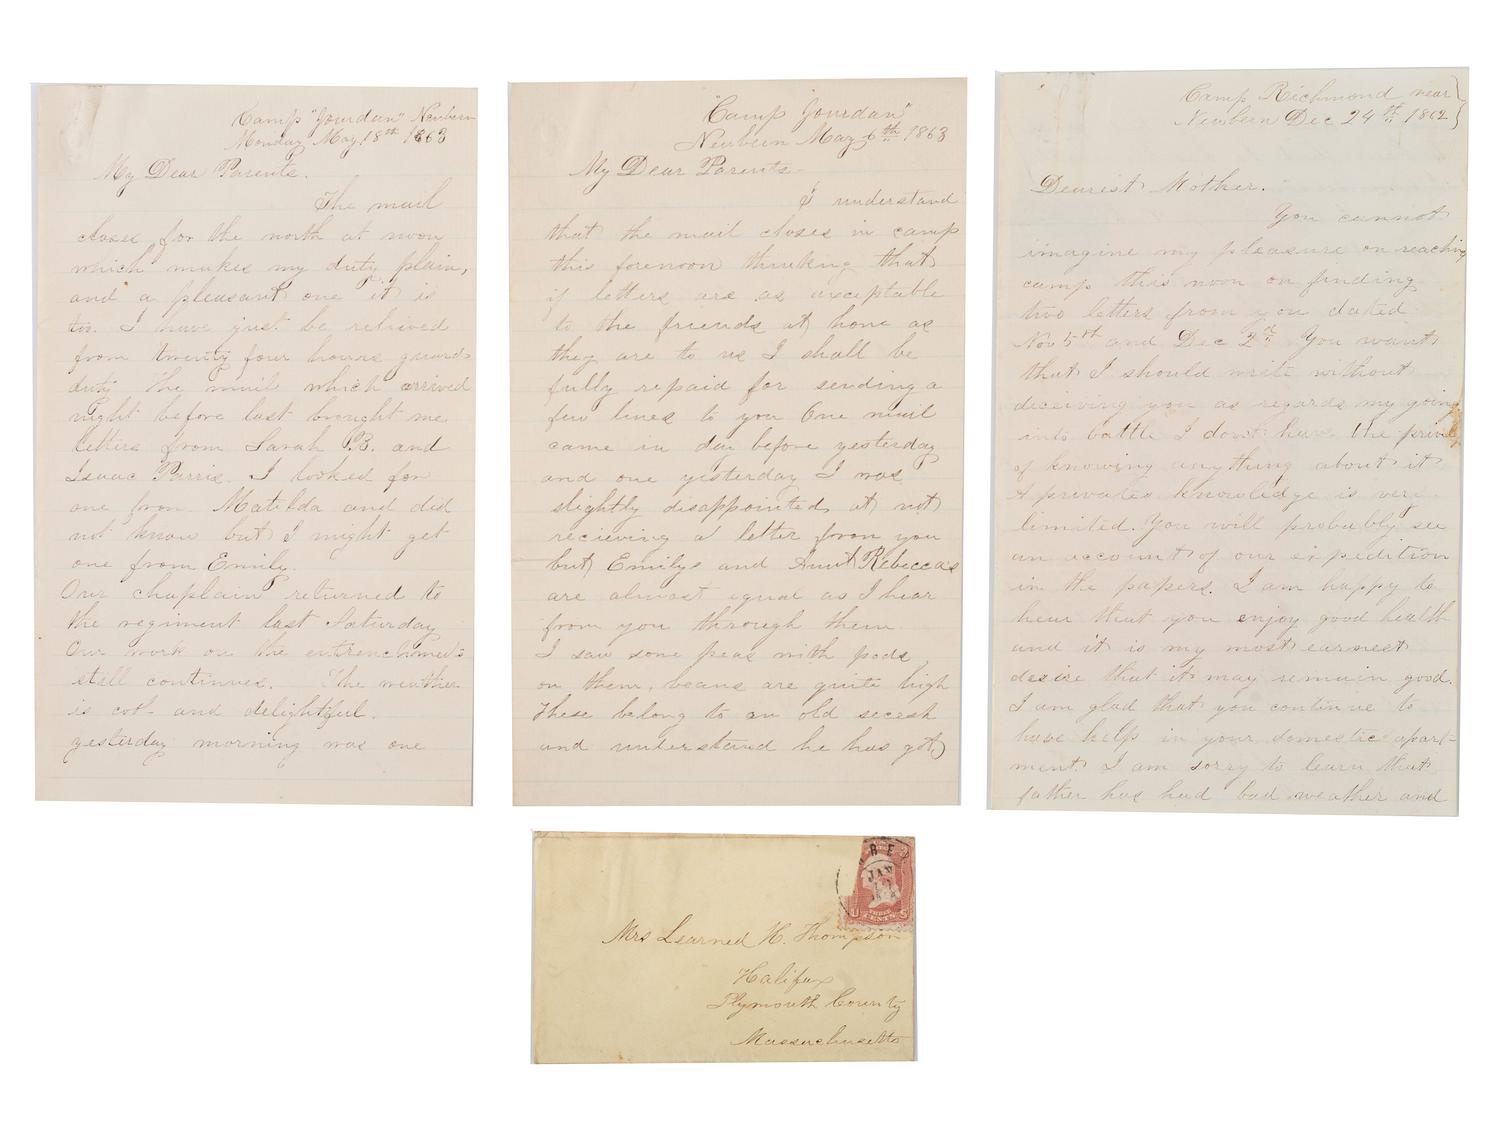 Camp "Jourdan" Newbern
Monday May 18th 1863
My Dear Parents.
The mail
closes for the north at noon
which makes my duty plain,
and a pleasant one it is
too. I have just be relieved
from twenty four hours guard
duty. The mail which arrived
night before last brought me
letters from Sarah B. and
Isaac Parris. I looked for
one from Matilda and did
not know but I might get
one from Emily.
Our chaplain returned to
the regiment last Saturday
Our work on the entrenchments
still continues. The weather
is cool and delightful.
yesterday morning was one
"Camp Jourdan"
Newbern May 6th 1863
My Dear Parents.
I understand
that the mail closes in camp
this forenoon thinking that
if letters are as acceptable
to the friends at home as
they are to us I shall be
fully repaid for sending a
few lines to you One mail
came in day before yesterday
and one yesterday I was
slightly disappointed at not
recieving a letter from you
but Emilys and Aunt Rebeccas
are almost equal as I hear
from you through them.
I saw some peas with pods
on them, beans are quite high
These belong to an old secesh
and understand he has got
Camp Richmond near
Newbern Dec 24th 1862
Dearest Mother.
You cannot
imagine my pleasure on reaching
camp this noon on finding
two letters from you dated
Nov 5th and Dec 2nd You want
that I should write without
deceiving you as regards my going
into battle I dont have the
of knowing anything about it
A privates knowledge is very
limited. You will probably see
an account of our expedition
in the papers. I am happy to
hear that you enjoy good health
and it is my most earnest
desire that it may remain good.
I am glad that you continue to
have help in your domestic apart-
ment. I am sorry to learn that
father has had bad weather and
JAN
THREE
CENTS
U S
Mrs Learned H. Thompson
Halifax
Plymouth County
Massachusetts